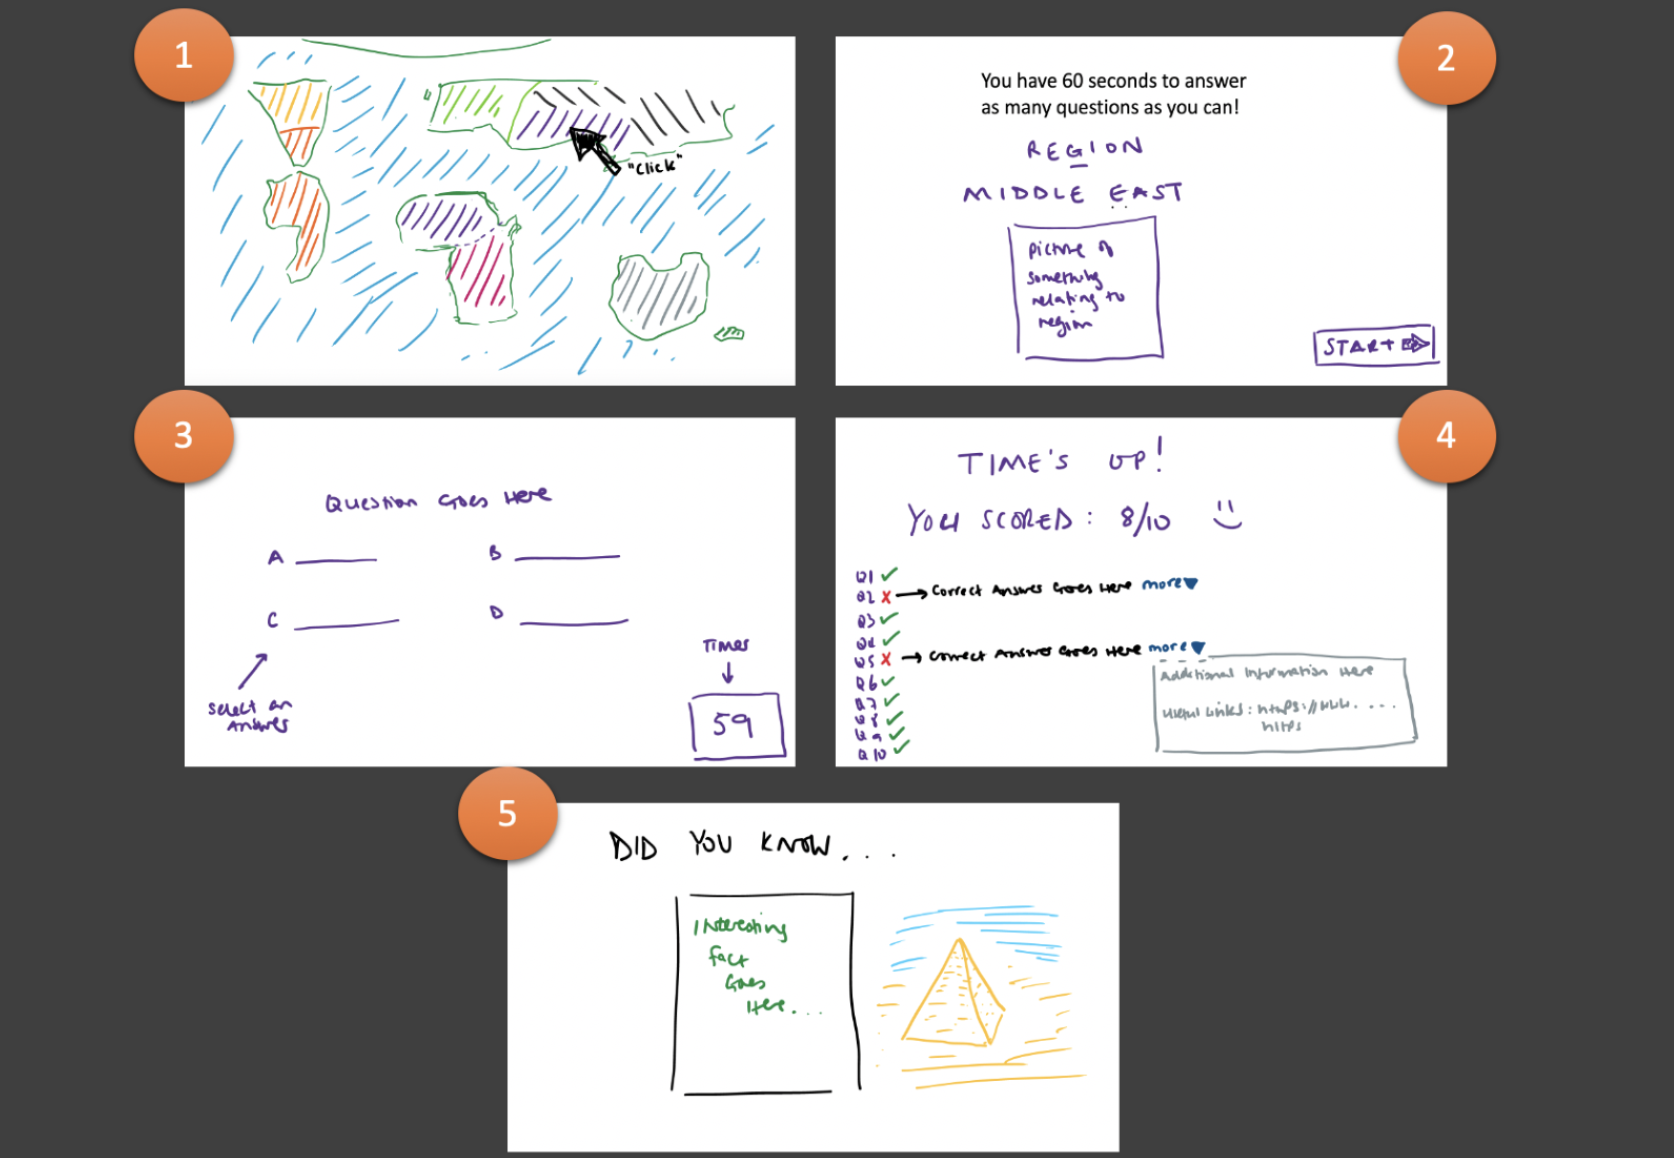 1
"Click"
2
You have 60 seconds to answer
as many questions as you can!
REGION
MIDDLE EAST
picture of
something
relating to
region
START
3
Question Goes Here
A
B
C
D
Select an
Answer
Timer
59
4
TIME'S UP!
YOU SCORED: 8/10
Q1 ✓
Q2 X → Correct Answer Goes Here more
Q3 ✓
Q4 ✓
Q5 X → Correct Answer Goes Here more
Q6 ✓
Q7 ✓
Q8 ✓
Q9 ✓
Q10 ✓
Additional Information Here
Useful Links: https://www. . . .
https
5
DID YOU KNOW. . .
Interesting
Fact
Goes
Here. . .